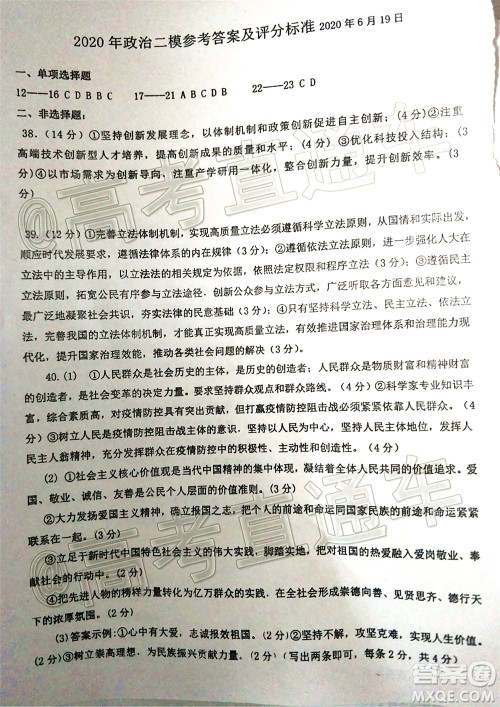 2020年政治二模参考答案及评分标准 2020年6月19日
一、单项选择题
12——16 CDBBC 17——21 ABCDB 22——23 CD
二、非选择题：
38.（14分）①坚持创新发展理念，以体制机制和政策创新促进自主创新；（4分）②注重
高端技术创新型人才培养，提高创新成果的质量和水平；（4分）③优化科技投入结构；（3
分）④以市场需求为创新导向、注重产学研用一体化，整合创新资源，提升创新效率。（3
分）
39.（12分）①完善立法体制机制，实现高质量立法必须遵循科学立法原则，从国情和实际出发，
顺应时代发展要求，遵循法律体系的内在规律（3分）；②遵循民主立法原则，坚持人大在
立法中的主导作用，以人民为中心（3分）；③遵循依法立法原则，依照法定权限和程序立法（3分）；
立法原则，拓宽公民有序参与立法途径，创新公众参与立法方式，广泛听取意见和建议，
最广泛地凝聚立法共识，夯实法律的民意基础（3分）④坚持科学立法、民主立法、依法立
法，完善我国的立法体制机制，可以实现高质量立法，从而推进国家治理体系和治理能力现
代化，提升国家治理效能，推动各类社会问题的解决（3分）。
40.（1）①人民群众是历史的创造者，人民群众是物质财富和精神财富
的创造者，是社会变革的决定力量。要求坚持群众观点和群众路线。（4分）②科学家专业知识丰
富，在疫情防控中发挥了关键作用，但打赢疫情防控阻击战必须紧紧依靠人民群众。（3
分）③树立人民是疫情防控阻击战主体的思想，动员广大人民群众积极参与疫情防控阻击战，
充分发挥人民群众在疫情防控中的积极性、主动性和创造性。（3分）
（2）①社会主义核心价值观是当代中国精神的集中体现，凝结着全体人民共同的价值追求。
敬业、诚信、友善是公民个人层面的价值准则。（2分）
②大力发扬爱国主义精神，立志报效祖国，自觉把人生的前途和命运同国家民族的前途和命运
（2分）
③立足于新时代中国特色社会主义的伟大实践，脚踏实地，把对祖国的热爱融入于爱岗敬业、奉
献社会的行动中。（2分）
④把先进人物的精神力量转化为亿万群众的力量，在全社会形成崇德向善、见贤思齐、德行天
下的浓厚氛围。（2分）
(3)答案示例：①心中有大爱，志诚报效祖国。②坚韧不拔，攻坚克难，实现人生价值。
（2分）③树立崇高理想，为民族振兴贡献力量。（写出两条即可，每条2分，共4分）
@高考直通车
@高考直通车
答案圈
MXQE.COM